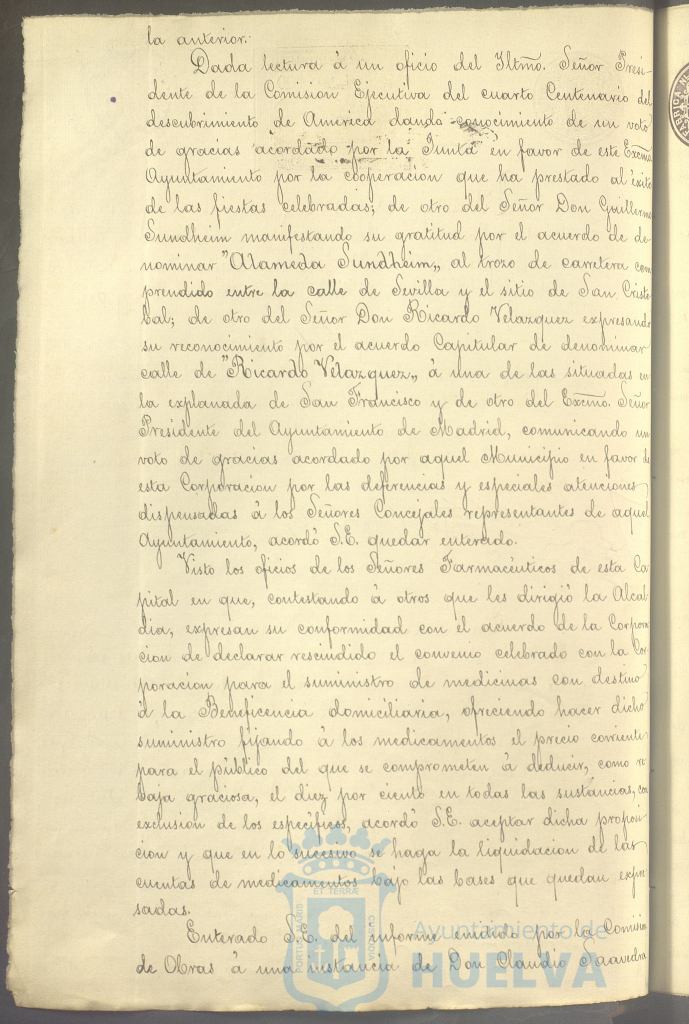 la anterior.
Dada lectura á un oficio del Iltmo. Señor Presi-
dente de la Comision Ejecutiva del cuarto Centenario del
descubrimiento de America dando conocimiento de un voto
de gracias acordado por la Junta en favor de este Excmo.
Ayuntamiento por la cooperacion que ha prestado al éxito
de las fiestas celebradas; de otro del Señor Don Guillermo
Sundheim manifestando su gratitud por el acuerdo de de-
nominar "Alameda Sundheim" al trozo de carretera com
prendido entre la calle de Sevilla y el sitio de San Cristo
bal; de otro del Señor Don Ricardo Velazquez expresando
su reconocimiento por el acuerdo Capitular de denominar
calle de "Ricardo Velazquez" á una de las situadas en
la explanada de San Francisco y de otro del Excmo. Señor
Presidente del Ayuntamiento de Madrid, comunicando un
voto de gracias acordado por aquel Municipio en favor de
esta Corporacion por las deferencias y especiales atenciones
dispensadas á los Señores Concejales representantes de aquel
Ayuntamiento, acordó S.E. quedar enterado.
Visto los oficios de los Señores Farmacéuticos de esta Ca
pital en que, contestando á otros que les dirigió la Alcal-
dia, expresan su conformidad con el acuerdo de la Corpora
cion de declarar rescindido el convenio celebrado con la Cor
poracion para el suministro de medicinas con destino
á la Beneficencia domiciliaria, ofreciendo hacer dicho
suministro fijando á los medicamentos el precio corriente
para el público del que se comprometen á deducir, como re
baja graciosa, el diez por ciento en todas las sustancias, con
exclusion de los específicos, acordó S.E. aceptar dicha proposi
cion y que en lo sucesivo se haga la liquidacion de las
cuentas de medicamentos bajo las bases que quedan expre
sadas.
Enterado S.E. del informe emitido por la Comision
de Obras á una instancia de Don Claudio Saavedra
PORTUS MARIS ET TERRÆ CUSTODIA
Ayuntamiento de
HUELVA